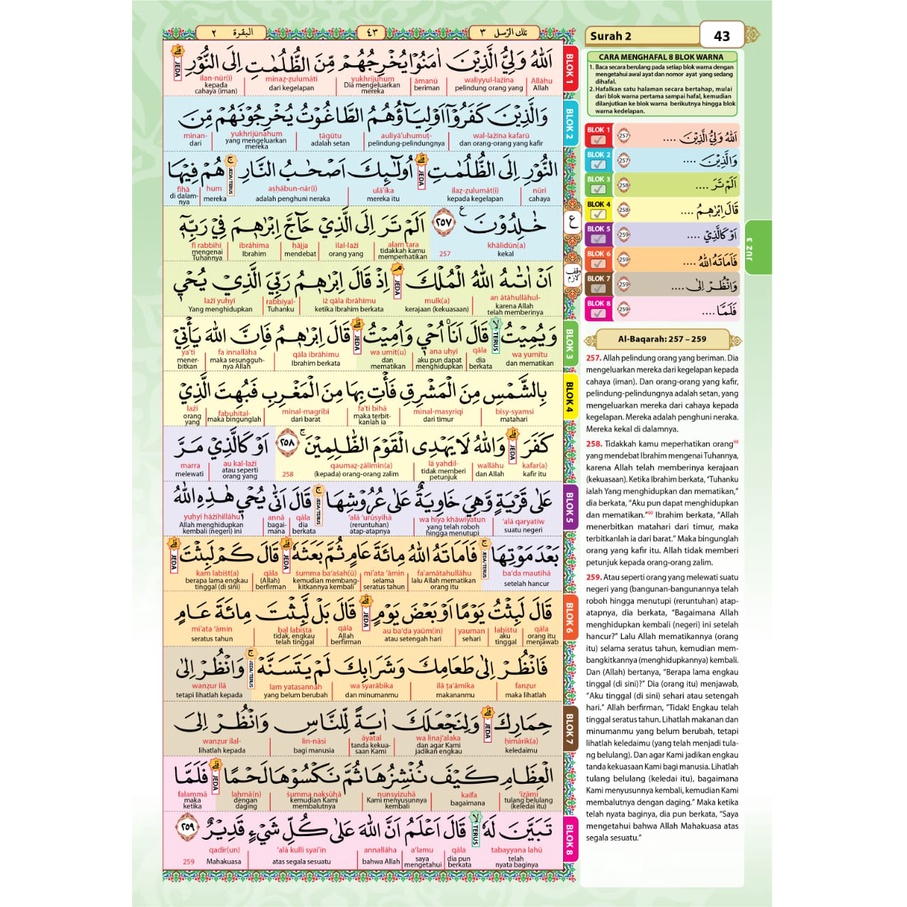 البقرة ٢
٤٣
تلك الرسل ٣
اَللّٰهُ وَلِيُّ الَّذِيْنَ اٰمَنُوْا يُخْرِجُهُمْ مِّنَ الظُّلُمٰتِ اِلَى النُّوْرِ
Allāhu waliyyul-lażīna āmanū yukhrijuhum minaẓ-ẓulumāti ilan-nūr(i)
Allah pelindung orang yang beriman Dia mengeluarkan mereka dari kegelapan kepada cahaya (iman)
JEDA
وَالَّذِيْنَ كَفَرُوْٓا اَوْلِيَاۤؤُهُمُ الطَّاغُوْتُ يُخْرِجُوْنَهُمْ مِّنَ
wal-lażīna kafarū auliyā'uhumuṭ- ṭāgūtu yukhrijūnahum minan-
dan orang-orang yang kafir pelindung-pelindungnya adalah setan yang mengeluarkan mereka dari
النُّوْرِ اِلَى الظُّلُمٰتِ اُولٰۤىِٕكَ اَصْحٰبُ النَّارِ هُمْ فِيْهَا
nūri ilaẓ-ẓulumāt(i) ulā'ika aṣḥābun-nār(i) hum fīhā
cahaya kepada kegelapan mereka itu adalah penghuni neraka mereka di dalamnya
JEDA
JEDA/TERUS
خٰلِدُوْنَ ٢٥٧ اَلَمْ تَرَ اِلَى الَّذِيْ حَاۤجَّ اِبْرٰهٖمَ فِيْ رَبِّهٖٓ
khālidūn(a) 257 alam tara ilal-lażī ḥājja ibrāhīma fī rabbihī
kekal tidakkah kamu memperhatikan orang yang mendebat Ibrahim mengenai Tuhannya
اَنْ اٰتٰىهُ اللّٰهُ الْمُلْكَ اِذْ قَالَ اِبْرٰهٖمُ رَبِّيَ الَّذِيْ يُحْيٖ
an ātāhullāhul- mulk(a) iż qāla ibrāhīmu rabbiyal- lażī yuḥyī
karena Allah telah memberinya kerajaan (kekuasaan) ketika Ibrahim berkata Tuhanku Yang menghidupkan
JEDA
وَيُمِيْتُ قَالَ اَنَا۠ اُحْيٖ وَاُمِيْتُ قَالَ اِبْرٰهٖمُ فَاِنَّ اللّٰهَ يَأْتِيْ
wa yumītu qāla ana uḥyī wa umīt(u) qāla ibrāhīmu fa innallāha ya'tī
dan mematikan dia berkata aku pun dapat menghidupkan dan mematikan Ibrahim berkata maka sesungguhnya Allah menerbitkan
TERUS
JEDA
بِالشَّمْسِ مِنَ الْمَشْرِقِ فَأْتِ بِهَا مِنَ الْمَغْرِبِ فَبُهِتَ الَّذِيْ
bisy-syamsi minal-masyriqi fa'ti bihā minal-magribi fabuhital- lażī
matahari dari timur maka terbitkanlah ia dari barat maka bingunglah orang yang
كَفَرَ وَاللّٰهُ لَا يَهْدِى الْقَوْمَ الظّٰلِمِيْنَ ٢٥٨ اَوْ كَالَّذِيْ مَرَّ
kafar(a) wallāhu lā yahdil- qaumaẓ-ẓālimīn(a) 258 au kal-lażī marra
kafir itu dan Allah tidak memberi petunjuk (kepada) orang-orang zalim atau seperti orang yang melewati
JEDA
عَلٰى قَرْيَةٍ وَّهِيَ خَاوِيَةٌ عَلٰى عُرُوْشِهَا قَالَ اَنّٰى يُحْيٖ هٰذِهِ اللّٰهُ
'alā qaryatiw wa hiya khāwiyatun 'alā 'urūsyihā qāla annā yuḥyī hāżihillāhu
suatu negeri yang telah roboh hingga menutupi (reruntuhan) atap-atapnya dia berkata bagaimana Allah menghidupkan kembali (negeri) ini
JEDA/TERUS
بَعْدَ مَوْتِهَا فَاَمَاتَهُ اللّٰهُ مِائَةَ عَامٍ ثُمَّ بَعَثَهٗ قَالَ كَمْ لَبِثْتَ
ba'da mautihā fa'amātahullāhu mi'ata 'āmin ṡumma ba'aṡah(ū) qāla kam labiṡt(a)
setelah hancur lalu Allah mematikan orang itu selama seratus tahun kemudian membangkitkannya kembali (Allah) berfirman berapa lama engkau tinggal (di sini)
JEDA/TERUS
JEDA
JEDA
قَالَ لَبِثْتُ يَوْمًا اَوْ بَعْضَ يَوْمٍ قَالَ بَلْ لَّبِثْتَ مِائَةَ عَامٍ
qāla labiṡtu yauman au ba'ḍa yaūm(in) qāla bal labiṡta mi'ata 'āmin
orang itu menjawab aku tinggal sehari atau setengah hari Allah berfirman tidak, engkau telah tinggal seratus tahun
JEDA
فَانْظُرْ اِلٰى طَعَامِكَ وَشَرَابِكَ لَمْ يَتَسَنَّهْ وَانْظُرْ اِلٰى
fanẓur ilā ṭa'āmika wa syarābika lam yatasannah wanẓur ilā
maka lihatlah makananmu dan minumanmu yang belum berubah tetapi lihatlah kepada
JEDA/TERUS
حِمَارِكَ وَلِنَجْعَلَكَ اٰيَةً لِّلنَّاسِ وَانْظُرْ اِلَى
ḥimārik(a) wa linaj'alaka āyatal lin-nāsi wanẓur ilal-
keledaimu dan agar Kami jadikan engkau tanda kekuasaan Kami bagi manusia lihatlah kepada
JEDA
الْعِظَامِ كَيْفَ نُنْشِزُهَا ثُمَّ نَكْسُوْهَا لَحْمًا فَلَمَّا
'iẓāmi kaifa nunsyizuhā ṡumma naksūhā laḥmā(n) falammā
tulang belulang (keledai itu) bagaimana Kami menyusunnya kembali kemudian Kami membalutnya dengan daging maka ketika
JEDA
تَبَيَّنَ لَهٗ قَالَ اَعْلَمُ اَنَّ اللّٰهَ عَلٰى كُلِّ شَيْءٍ قَدِيْرٌ ٢٥٩
tabayyana lahū qāla a'lamu annallāha 'alā kulli syai'in qadīr(un) 259
telah nyata baginya dia pun berkata saya mengetahui bahwa Allah atas segala sesuatu Mahakuasa
TERUS
BLOK 1
BLOK 2
BLOK 3
BLOK 4
BLOK 5
BLOK 6
BLOK 7
BLOK 8
Surah 2
43
CARA MENGHAFAL 8 BLOK WARNA
1. Baca secara berulang pada setiap blok warna dengan
mengetahui awal ayat dan nomor ayat yang sedang
dihafal.
2. Hafalkan satu halaman secara bertahap, mulai
dari blok warna pertama sampai hafal, kemudian
dilanjutkan ke blok warna berikutnya hingga blok
warna kedelapan.
BLOK 1 257 اَللّٰهُ وَلِيُّ الَّذِيْنَ ....
BLOK 2 257 وَالَّذِيْنَ ....
BLOK 3 258 اَلَمْ تَرَ ....
BLOK 4 258 قَالَ اِبْرٰهٖمُ ....
BLOK 5 259 اَوْ كَالَّذِيْ ....
BLOK 6 259 فَاَمَاتَهُ اللّٰهُ ....
BLOK 7 259 وَانْظُرْ اِلٰى ....
BLOK 8 259 فَلَمَّا ....
JUZ 3
Al-Baqarah: 257 – 259
257. Allah pelindung orang yang beriman. Dia
mengeluarkan mereka dari kegelapan kepada
cahaya (iman). Dan orang-orang yang kafir,
pelindung-pelindungnya adalah setan, yang
mengeluarkan mereka dari cahaya kepada
kegelapan. Mereka adalah penghuni neraka.
Mereka kekal di dalamnya.
258. Tidakkah kamu meperhatikan orang
yang mendebat Ibrahim mengenai Tuhannya,
karena Allah telah memberinya kerajaan
(kekuasaan). Ketika Ibrahim berkata, "Tuhanku
ialah Yang menghidupkan dan mematikan,"
dia berkata, "Aku pun dapat menghidupkan
dan mematikan." Ibrahim berkata, "Allah
menerbitkan matahari dari timur, maka
terbitkanlah ia dari barat." Maka bingunglah
orang yang kafir itu. Allah tidak memberi
petunjuk kepada orang-orang zalim.
259. Atau seperti orang yang melewati suatu
negeri yang (bangunan-bangunannya telah
roboh hingga menutupi (reruntuhan) atap-
atapnya, dia berkata, "Bagaimana Allah
menghidupkan kembali (negeri) ini setelah
hancur?" Lalu Allah mematikannya (orang
itu) selama seratus tahun, kemudian mem-
bangkitkannya (menghidupkannya) kembali.
Dan (Allah) bertanya, "Berapa lama engkau
tinggal (di sini)?" Dia (orang itu) menjawab,
"Aku tinggal (di sini) sehari atau setengah
hari." Allah berfirman, "Tidak! Engkau telah
tinggal seratus tahun. Lihatlah makanan dan
minumanmu yang belum berubah, tetapi
lihatlah keledaimu (yang telah menjadi tula-
ng belulang). Dan agar Kami jadikan engkau
tanda kekuasaan Kami bagi manusia. Lihatlah
tulang belulang (keledai itu), bagaimana
Kami menyusunnya kembali, kemudian Kami
membalutnya dengan daging." Maka ketika
telah nyata baginya, dia pun berkata, "Saya
mengetahui bahwa Allah Mahakuasa atas
segala sesuatu."